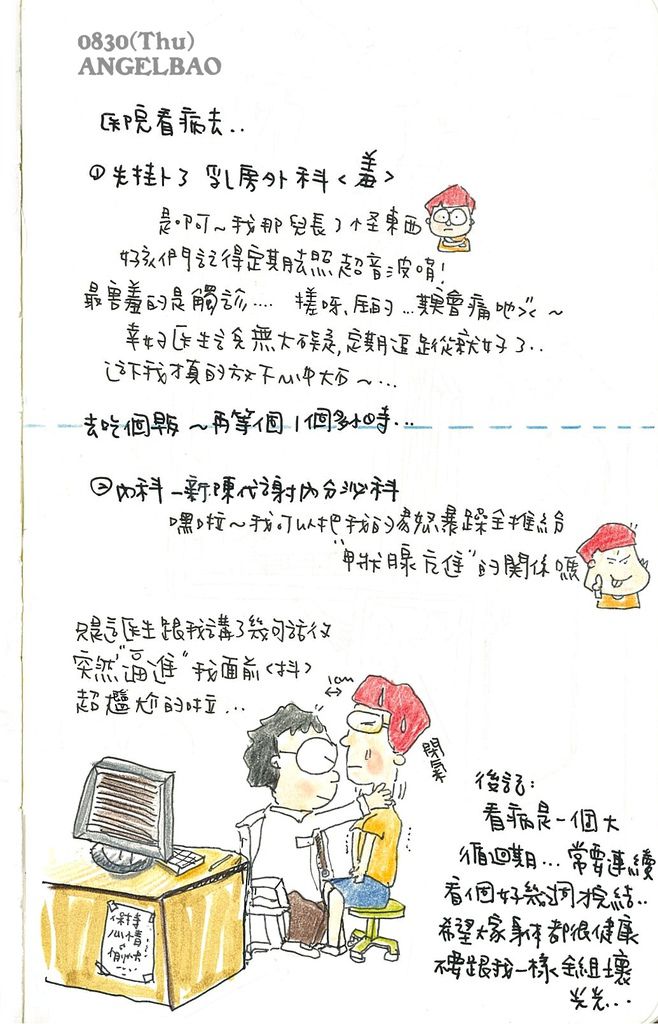 0830(Thu)
ANGELBAO
医院看病去..
①先挂卜了 乳房外科<羞>
是啊~我那兒長了怪東西
好孩們記得定期去照超音波唷!
最害羞的是觸診.... 搓呀、压的...
幸好医生說無大碍,定期追蹤就好了..
這下我才真的放下心中大石~...
去吃個早飯~再等個1個多小時...
②內科-新陳代謝內分泌科
嘿啦~我可以把我的易怒暴躁全推給
"甲狀腺亢進"的關係嗎
只是這医生跟我講了幾句話後
突然"逼進"我面前<抖>
超尷尬的啦...
1cm
閉氣
保持
心情
後記:
看病是一個大
循迴期...常要連續
看個好幾洞才完結..
希望大家身体都很健康
不要跟我一樣全組壞
光光...